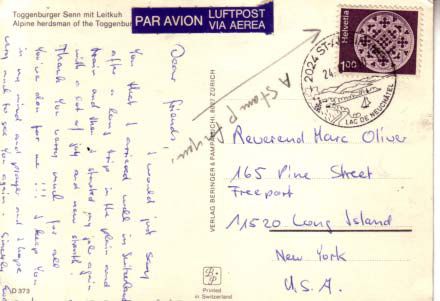 Toggenburger Senn mit Leitkuh
Alpine herdsman of the Toggenbur
PAR AVION LUFTPOST
VIA AEREA
Helvetia
1.00
2024 ST-
24.
LAC DE NEUCHATEL
A stamp for you
Dear friends,
I would just say
you that I arrived well in Switzerland
after a long trip in the plane and
train and then I started my job again
with a lot of joy and new strenth.
Thank you very much for all
you've done for me!!! I keep you
in my mind and prayer and I hope
very much to see you again.
VERLAG BERINGER & PAMPALUCHI, 8027 ZÜRICH
Reverend Marc Oliver
165 Pine Street
Freeport
11520 Long Island
New York
U.S.A.
Printed
in Switzerland
D 373